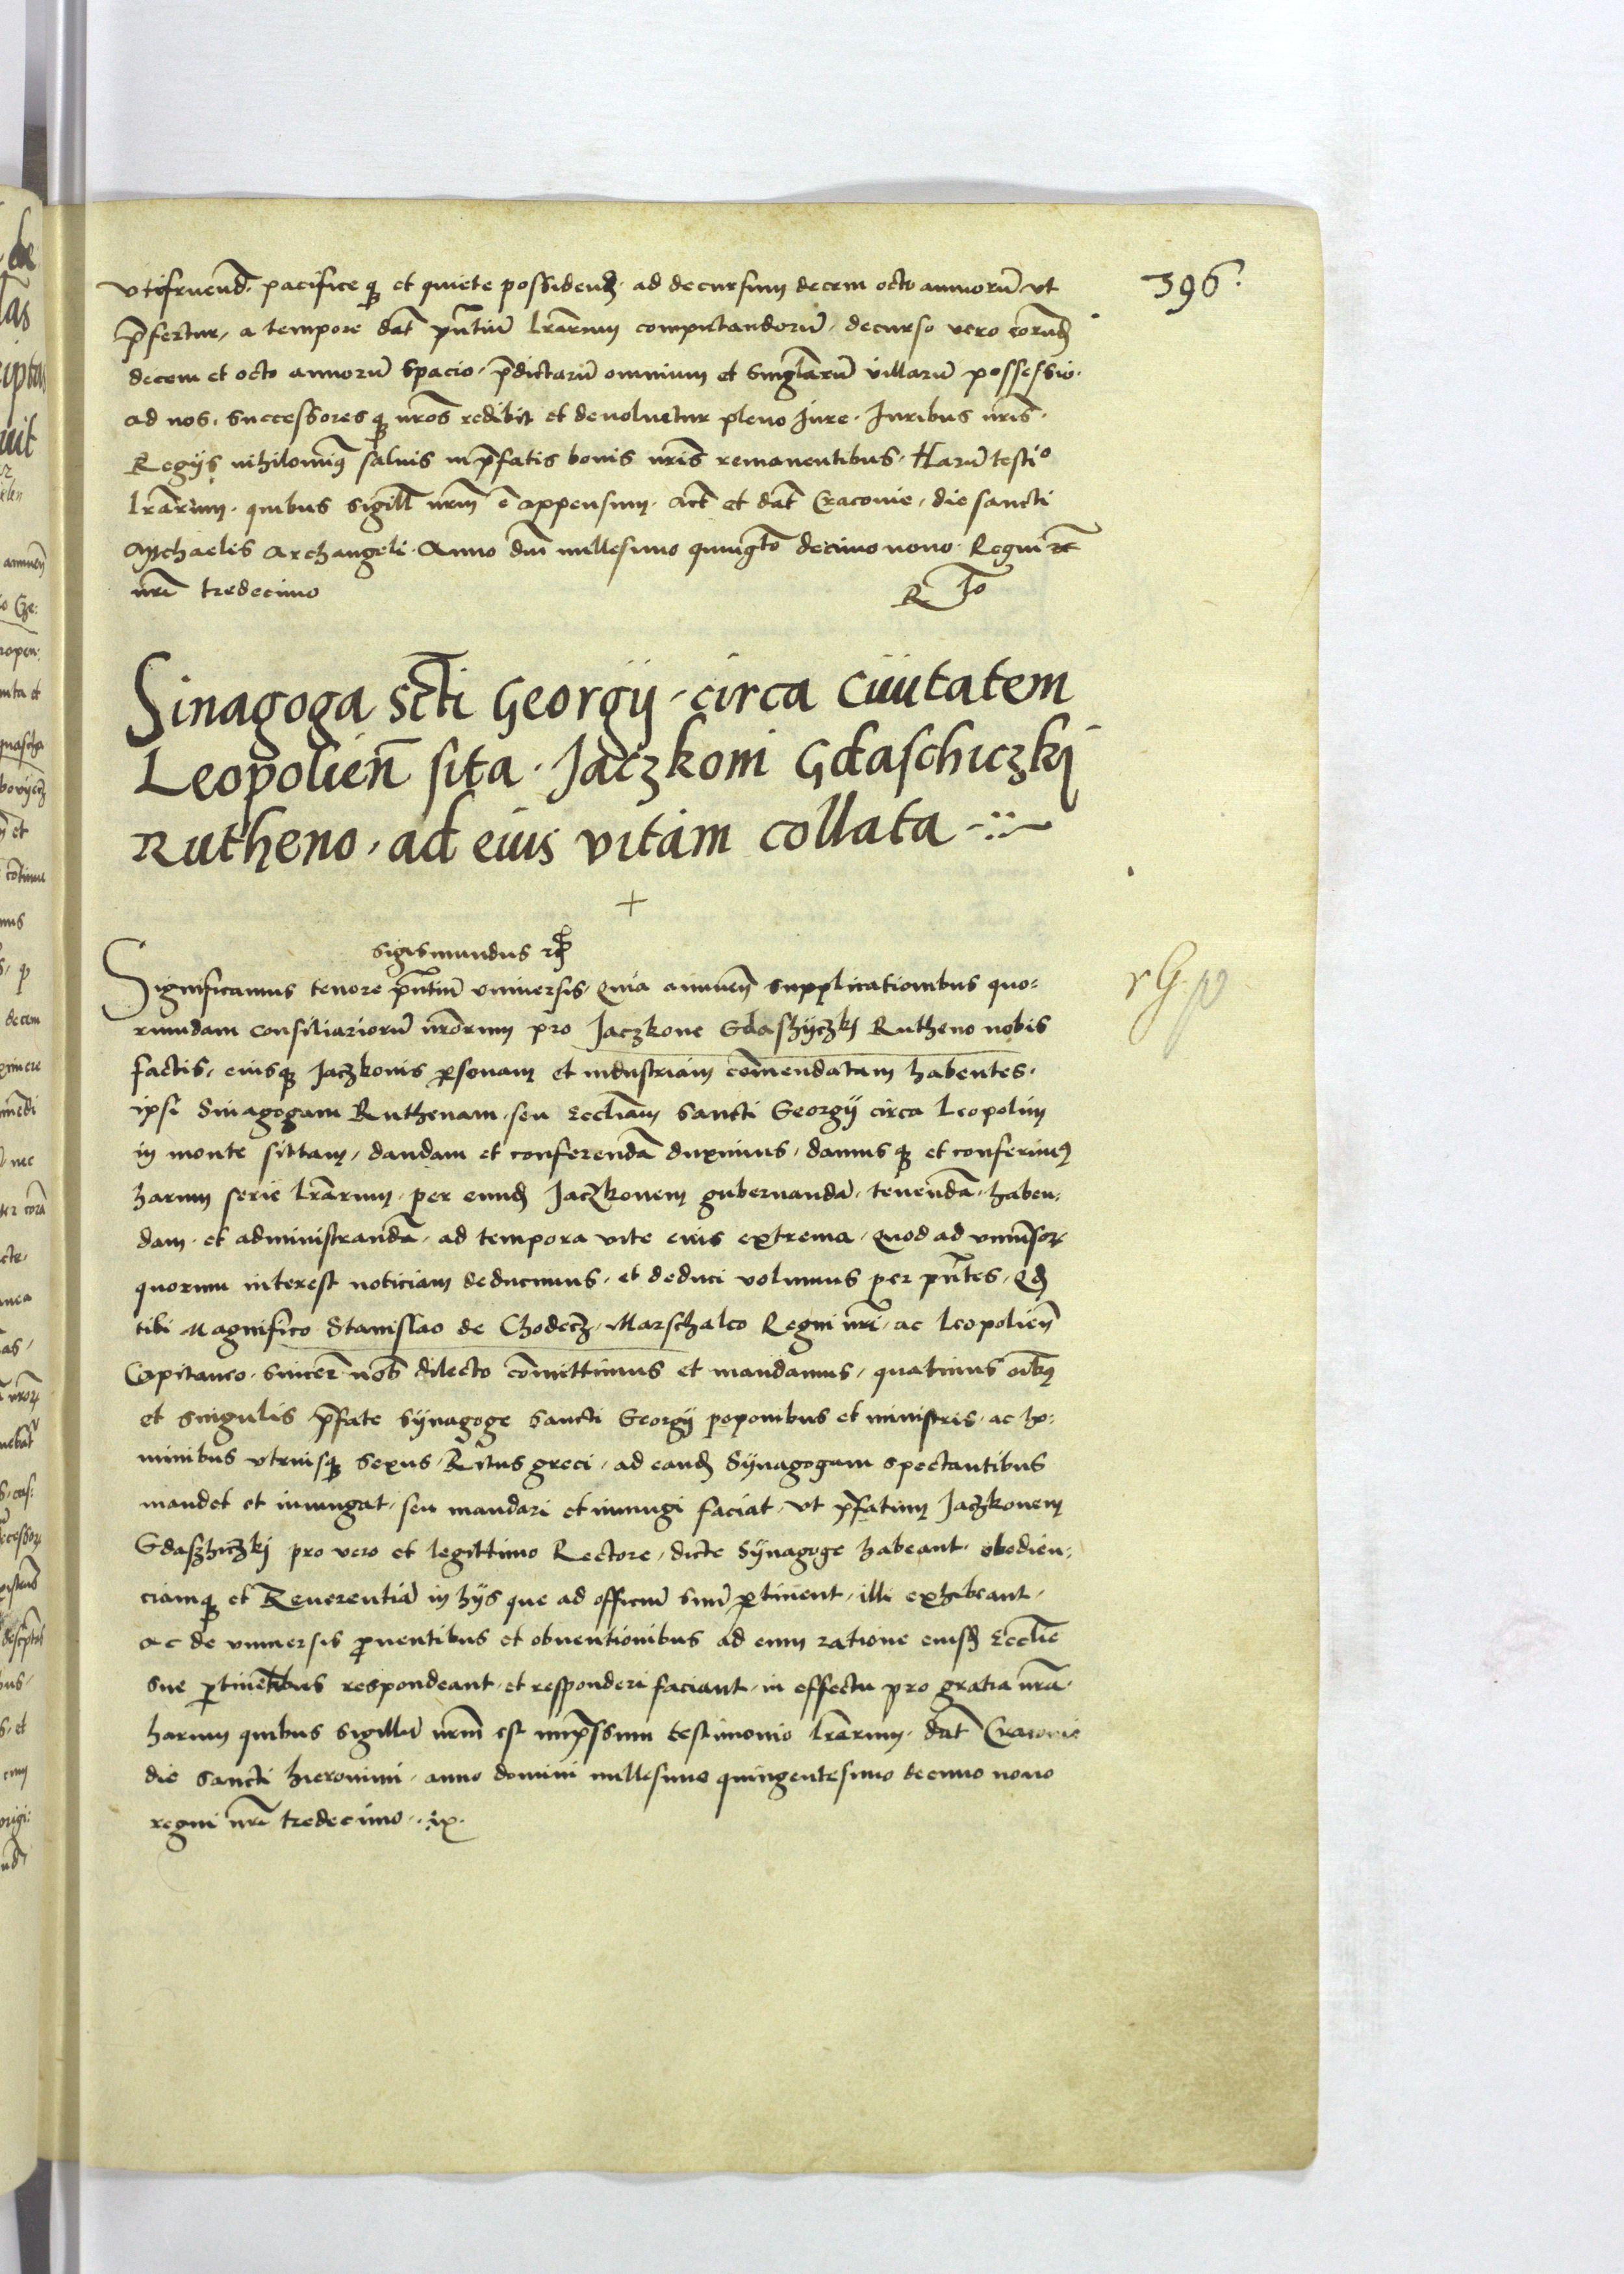 396.
vtifruend. pacifice q3 et quiete possidend. ad decursum decem octo annorū vt
p̄fertur, a tempore dat̄ pn̄tiū lr̄arum computandorū, decurso vero eorund
decem et octo annorū spacio. p̄dictarū omnium et singlarū villarū possessio.
ad nos. successores q3 nr̄os redibit et deuoluetur pleno Jure. Juribus nr̄is.
Regijs nihilomin9 saluis in p̄fatis bonis nr̄is remanentibus. Harū testio
lr̄arum. quibus sigill nr̄m ē appensum. Act̄ et dat̄ Cracouie, die sancti
Mychaelis Archangeli. Anno dn̄i millesimo quinḡto decimonono. Regni
nr̄i tredecimo
Sinagoga sc̄ti Georgij. circa Ciuitatem
Leopolien̄ sita. Jaczkoni Gdaschiczkj
Rutheno, ad eius vitam collata
Sigismundus
Significamus tenore pn̄tiū vniuersis. Quia annuen̄ supplicationibus quo=
rundam consiliariorū nr̄orum pro Jaczkone Gdashyczkj Rutheno nobis
factis, eiusq3 Jaczkonis p̱sonam et industriam com̄endatam habentes.
ipsi Sinagogam Ruthenam. seu Eccl̄iam sancti Georgij circa Leopolim
in monte sittam, dandam et conferendā duximus, damus q3 et conferim9
harum serie lr̄arum. per eund Jaczkonem gubernandā. tenendā. haben=
dam. et administrandā. ad tempora vite eius extrema. Quod ad vniu̅sor
quorum interest noticiam deducimus. et deduci volumus per pn̄tes. Qd
tibi Magnifico Stanislao de Chodecz. Marschalco Regni nr̄i. ac Leopolien̄
Capitaneo. sincer̄ nob̄ dilecto com̄ittimus et mandamus, quatinus oīb9
et singulis p̄fate Synagoge sancti Georgij poponibus et ministris. ac ho=
minibus vtriusq3 sexus, Ritus greci, ad eand Synagogam spectantibus
mandet et iniungat, seu mandari et iniungi faciat, vt p̄fatum Jaczkonem
Gdaszhiczkj pro vero et legittimo Rectore, dicte Synagoge habeant. obedien=
ciamq3 et Reuerentiā in hijs que ad officiū suū p̱tinent, illi exhibeant.
ac de vniuersis ꝓuentibus et obuentionibus ad eum ratione eiusd Eccl̄ie
sue p̱tinētibus respondeant. et responderi faciant. in effectu pro gratia nr̄a.
harum quibus sigillū nr̄m est imp̄ssum testimonio lr̄arum. dat̄ Cracouie
die sancti hieronimi. anno domini millesimo quingentesimo decimo nono
regni nr̄i tredecimo